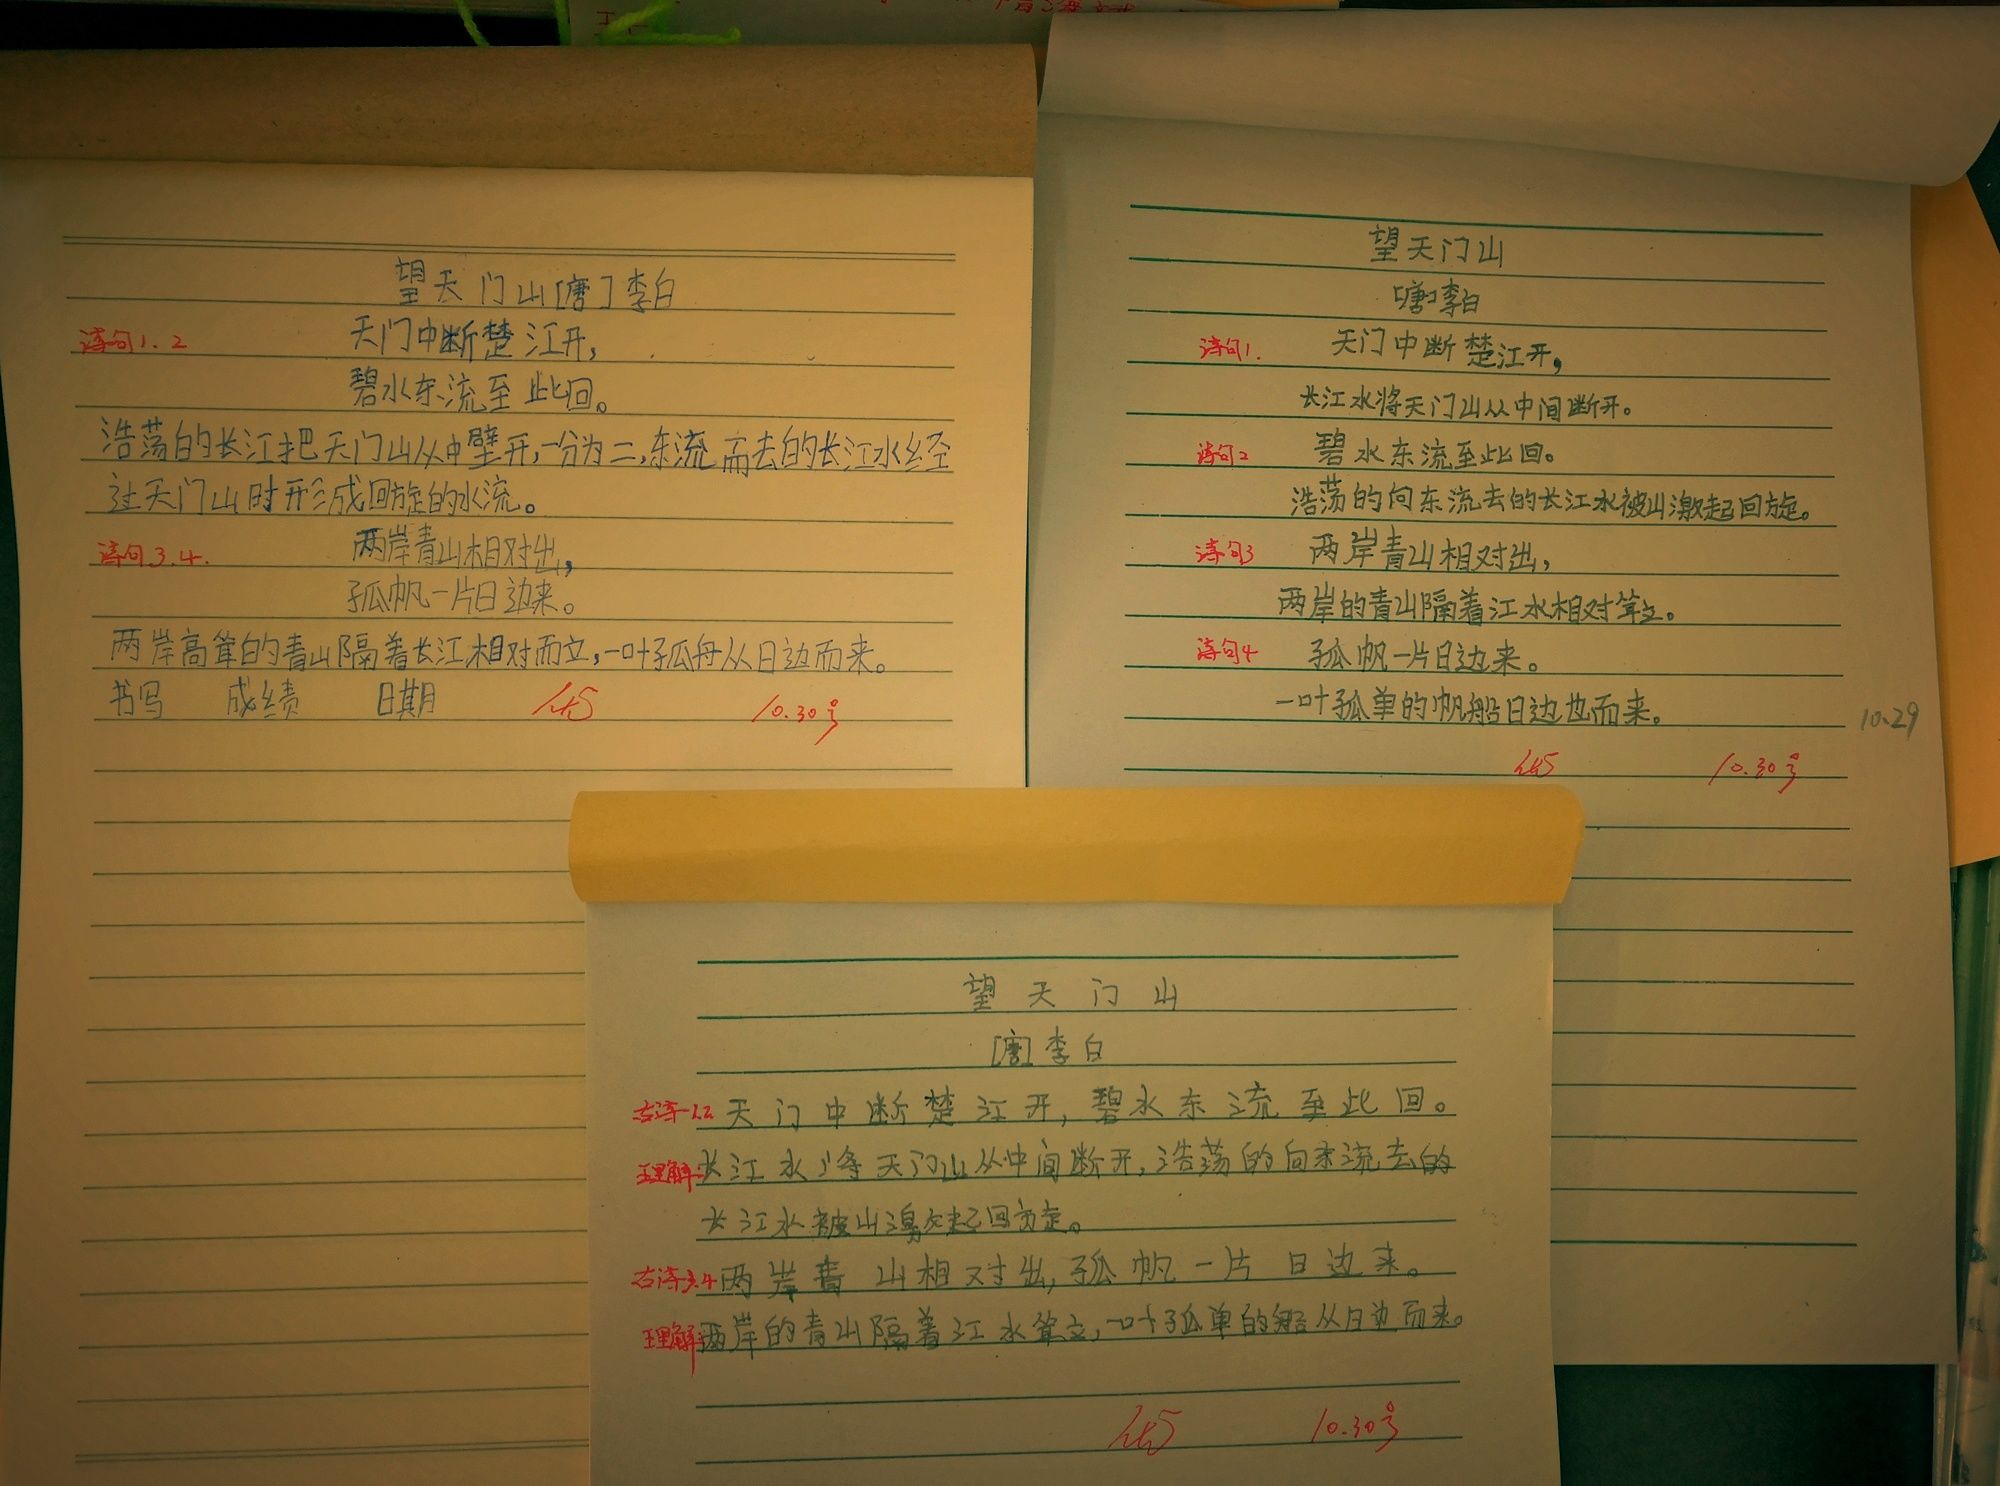 望天门山[唐]李白
诗句1.2 天门中断楚江开,
碧水东流至此回。
浩荡的长江把天门山从中壁开,一分为二,东流而去的长江水经
过天门山时形成回旋的水流。
诗句3.4. 两岸青山相对出,
孤帆一片日边来。
两岸高耸的青山隔着长江相对而立,一叶孤舟从日边而来。
书写 成绩 日期 10.30号
望天门山
[唐]李白
诗句1. 天门中断楚江开,
长江水将天门山从中间断开。
诗句2 碧水东流至此回。
浩荡的向东流去的长江水被山激起回旋。
诗句3 两岸青山相对出,
两岸的青山隔着江水相对耸立。
诗句4 孤帆一片日边来。
一叶孤单的帆船日边也而来。
10.29
10.30号
望天门山
[唐]李白
古诗1.2 天门中断楚江开,碧水东流至此回。
理解: 长江水将天门山从中间断开,浩荡的向东流去的
长江水被山激起回旋。
古诗3.4 两岸青山相对出,孤帆一片日边来。
理解: 两岸的青山隔着江水耸立,一叶孤单的船从日边而来。
10.30号